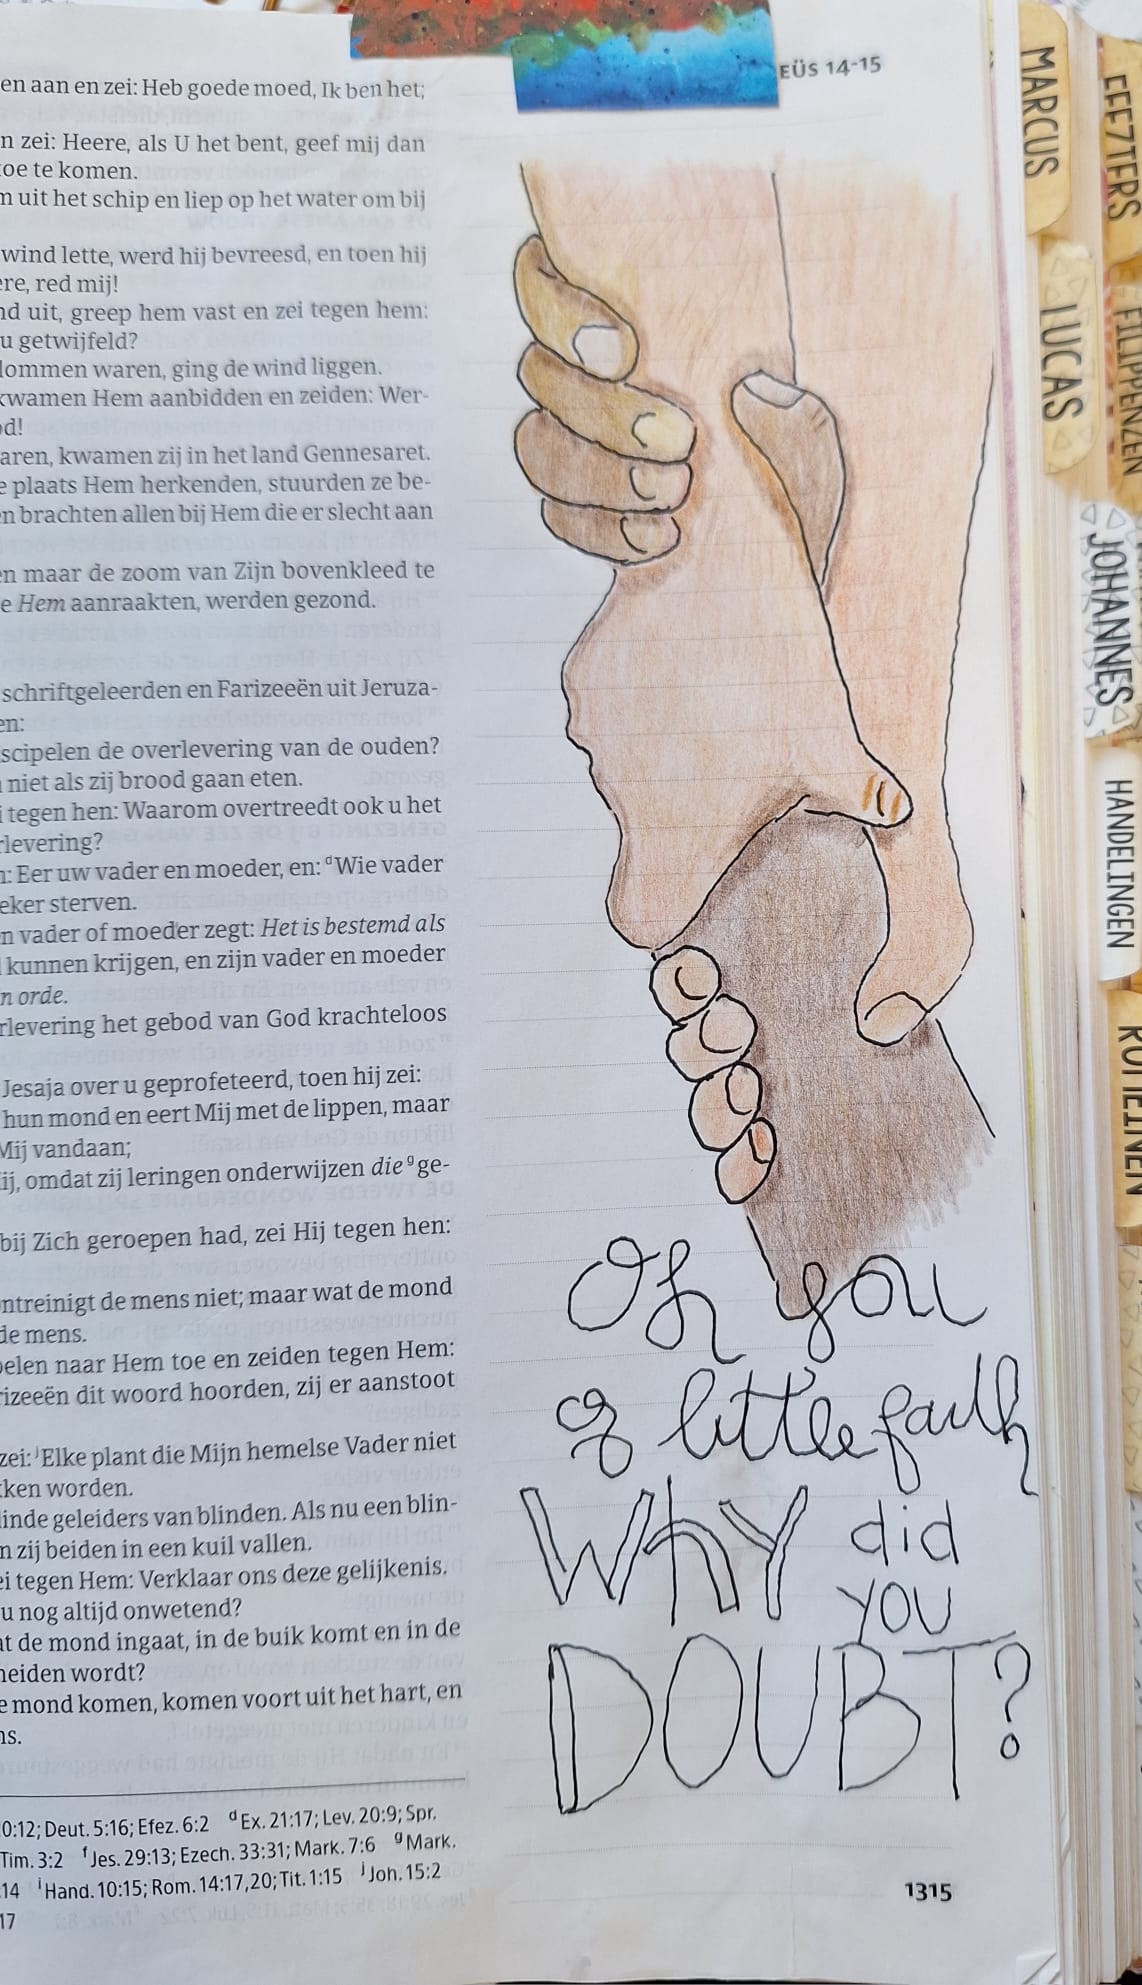 EÜS 14-15
en aan en zei: Heb goede moed, Ik ben het;
n zei: Heere, als U het bent, geef mij dan
oe te komen.
n uit het schip en liep op het water om bij
wind lette, werd hij bevreesd, en toen hij
re, red mij!
nd uit, greep hem vast en zei tegen hem:
u getwijfeld?
lommen waren, ging de wind liggen.
kwamen Hem aanbidden en zeiden: Wer-
od!
aren, kwamen zij in het land Gennesaret.
e plaats Hem herkenden, stuurden ze be-
n brachten allen bij Hem die er slecht aan
en maar de zoom van Zijn bovenkleed te
e Hem aanraakten, werden gezond.
schriftgeleerden en Farizeeën uit Jeruza-
en:
scipelen de overlevering van de ouden?
niet als zij brood gaan eten.
i tegen hen: Waarom overtreedt ook u het
rlevering?
n: Eer uw vader en moeder, en: dWie vader
eker sterven.
n vader of moeder zegt: Het is bestemd als
kunnen krijgen, en zijn vader en moeder
n orde.
rlevering het gebod van God krachteloos
Jesaja over u geprofeteerd, toen hij zei:
hun mond en eert Mij met de lippen, maar
Mij vandaan;
ij, omdat zij leringen onderwijzen die gge-
bij Zich geroepen had, zei Hij tegen hen:
ntreinigt de mens niet; maar wat de mond
de mens.
pelen naar Hem toe en zeiden tegen Hem:
rizeeën dit woord hoorden, zij er aanstoot
zei: jElke plant die Mijn hemelse Vader niet
ken worden.
linde geleiders van blinden. Als nu een blin-
n zij beiden in een kuil vallen.
ei tegen Hem: Verklaar ons deze gelijkenis.
u nog altijd onwetend?
at de mond ingaat, in de buik komt en in de
heiden wordt?
e mond komen, komen voort uit het hart, en
ns.
0:12; Deut. 5:16; Efez. 6:2 d Ex. 21:17; Lev. 20:9; Spr.
Tim. 3:2 f Jes. 29:13; Ezech. 33:31; Mark. 7:6 g Mark.
14 i Hand. 10:15; Rom. 14:17,20; Tit. 1:15 j Joh. 15:2
17
Oh you
of little faith
WHY did
YOU
DOUBT?
1315
MARCUS
LUCAS
JOHANNES
HANDELINGEN
ROMEINEN
EFEZIERS
FILIPPENZEN